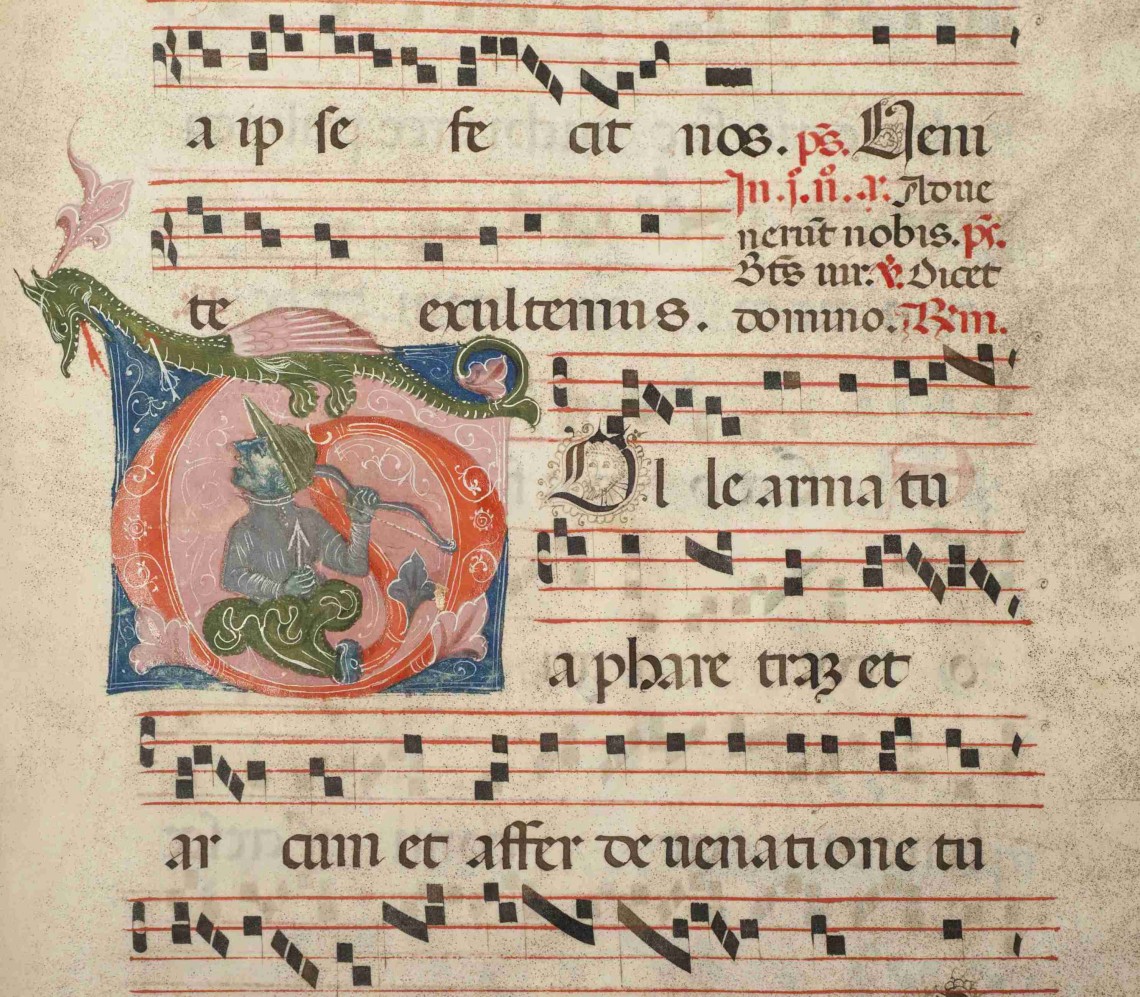 a ip se fe cit nos. ps̄. Ueni
In .j. ii̊. a: Adue
nerūt nobis. ps̄.
Bt̄s uir. ℣. Dicet
te exultemus. domino. Rm̄.
Ol le arma tu
a phare trāꝫ et
ar cum et affer de uenatione tu